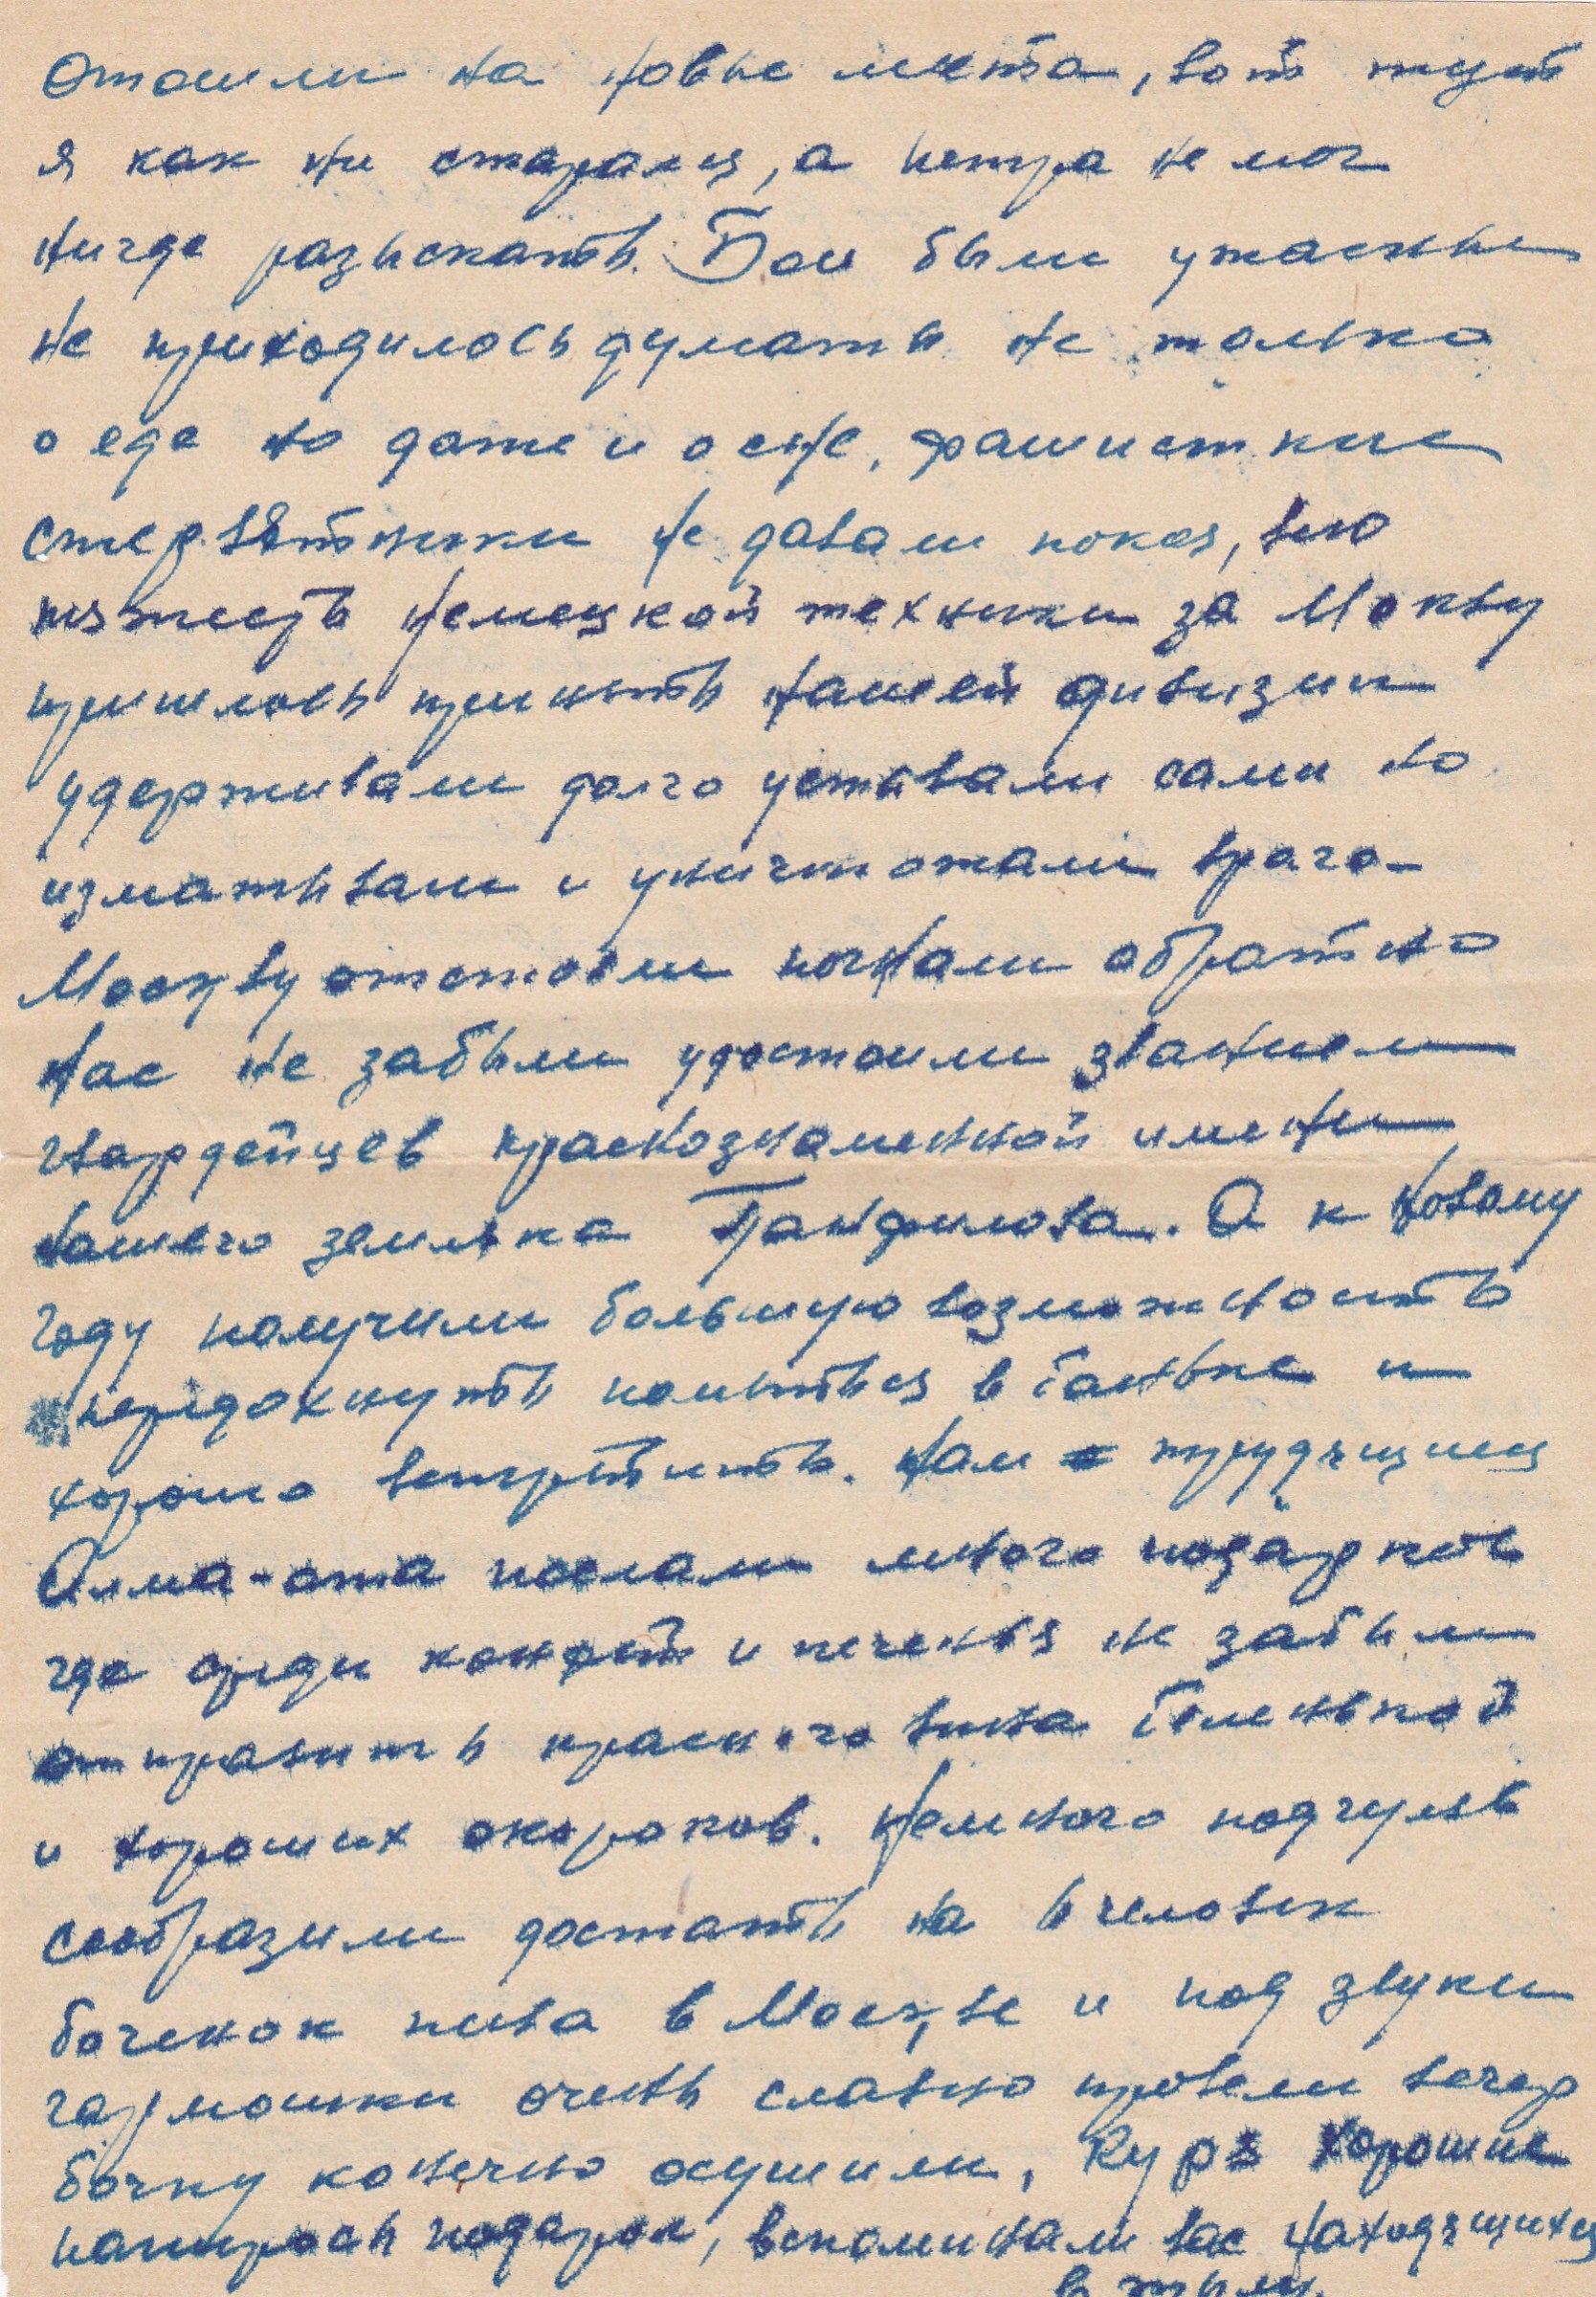 Отошли на новые места, вот тут
я как ни старался, а Петра не мог
нигде разыскать. Бои были ужасные
не приходилось думать не только
о еде но даже и о сне, фашисткие
стервятники не давали покоя, всю
тяжесть немецкой техники за Москву
пришлось принять нашей дивизии
удерживали долго уставали сами но
изматывали и уничтожали врага
Москву отстояли погнали обратно
нас не забыли удостоили званием
гвардейцев краснознаменной имени
нашего земляка Панфилова. А к новому
году получили большую возможность
передохнуть помыться в баньке и
хорошо встретить. Нам трудящиеся
Алма-ата послали много подарков
где среди конфет и печенья не забыли
отправить красного вина беленькой
и хороших окороков. Немного подгуляв
сообразили достать на 6 человек
боченок пива в Москве и под звуки
гармошки очень славно провели вечер
бочку конечно осушили, Куря хорошие
папиросы подарок, вспоминали вас находящихся
в тылу.